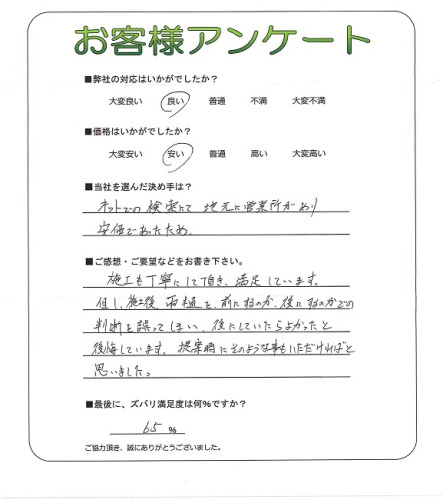 お客様アンケート
■弊社の対応はいかがでしたか?
大変良い 良い 普通 不満 大変不満
■価格はいかがでしたか?
大変安い 安い 普通 高い 大変高い
■当社を選んだ決め手は?
ネットでの検索にて 地元に営業所があり
安価であったため.
■ご感想・ご要望などをお書き下さい。
施工も丁寧にして頂き、満足しています。
但し、施工後、雨樋を、前にするのか、後にするのかでの
判断を誤ってしまい、後にしていたらよかったと
後悔しています。提案時にそのような事もいただければと
思いました。
■最後に、ズバリ満足度は何%ですか?
65 %
ご協力頂き、誠にありがとうございました。